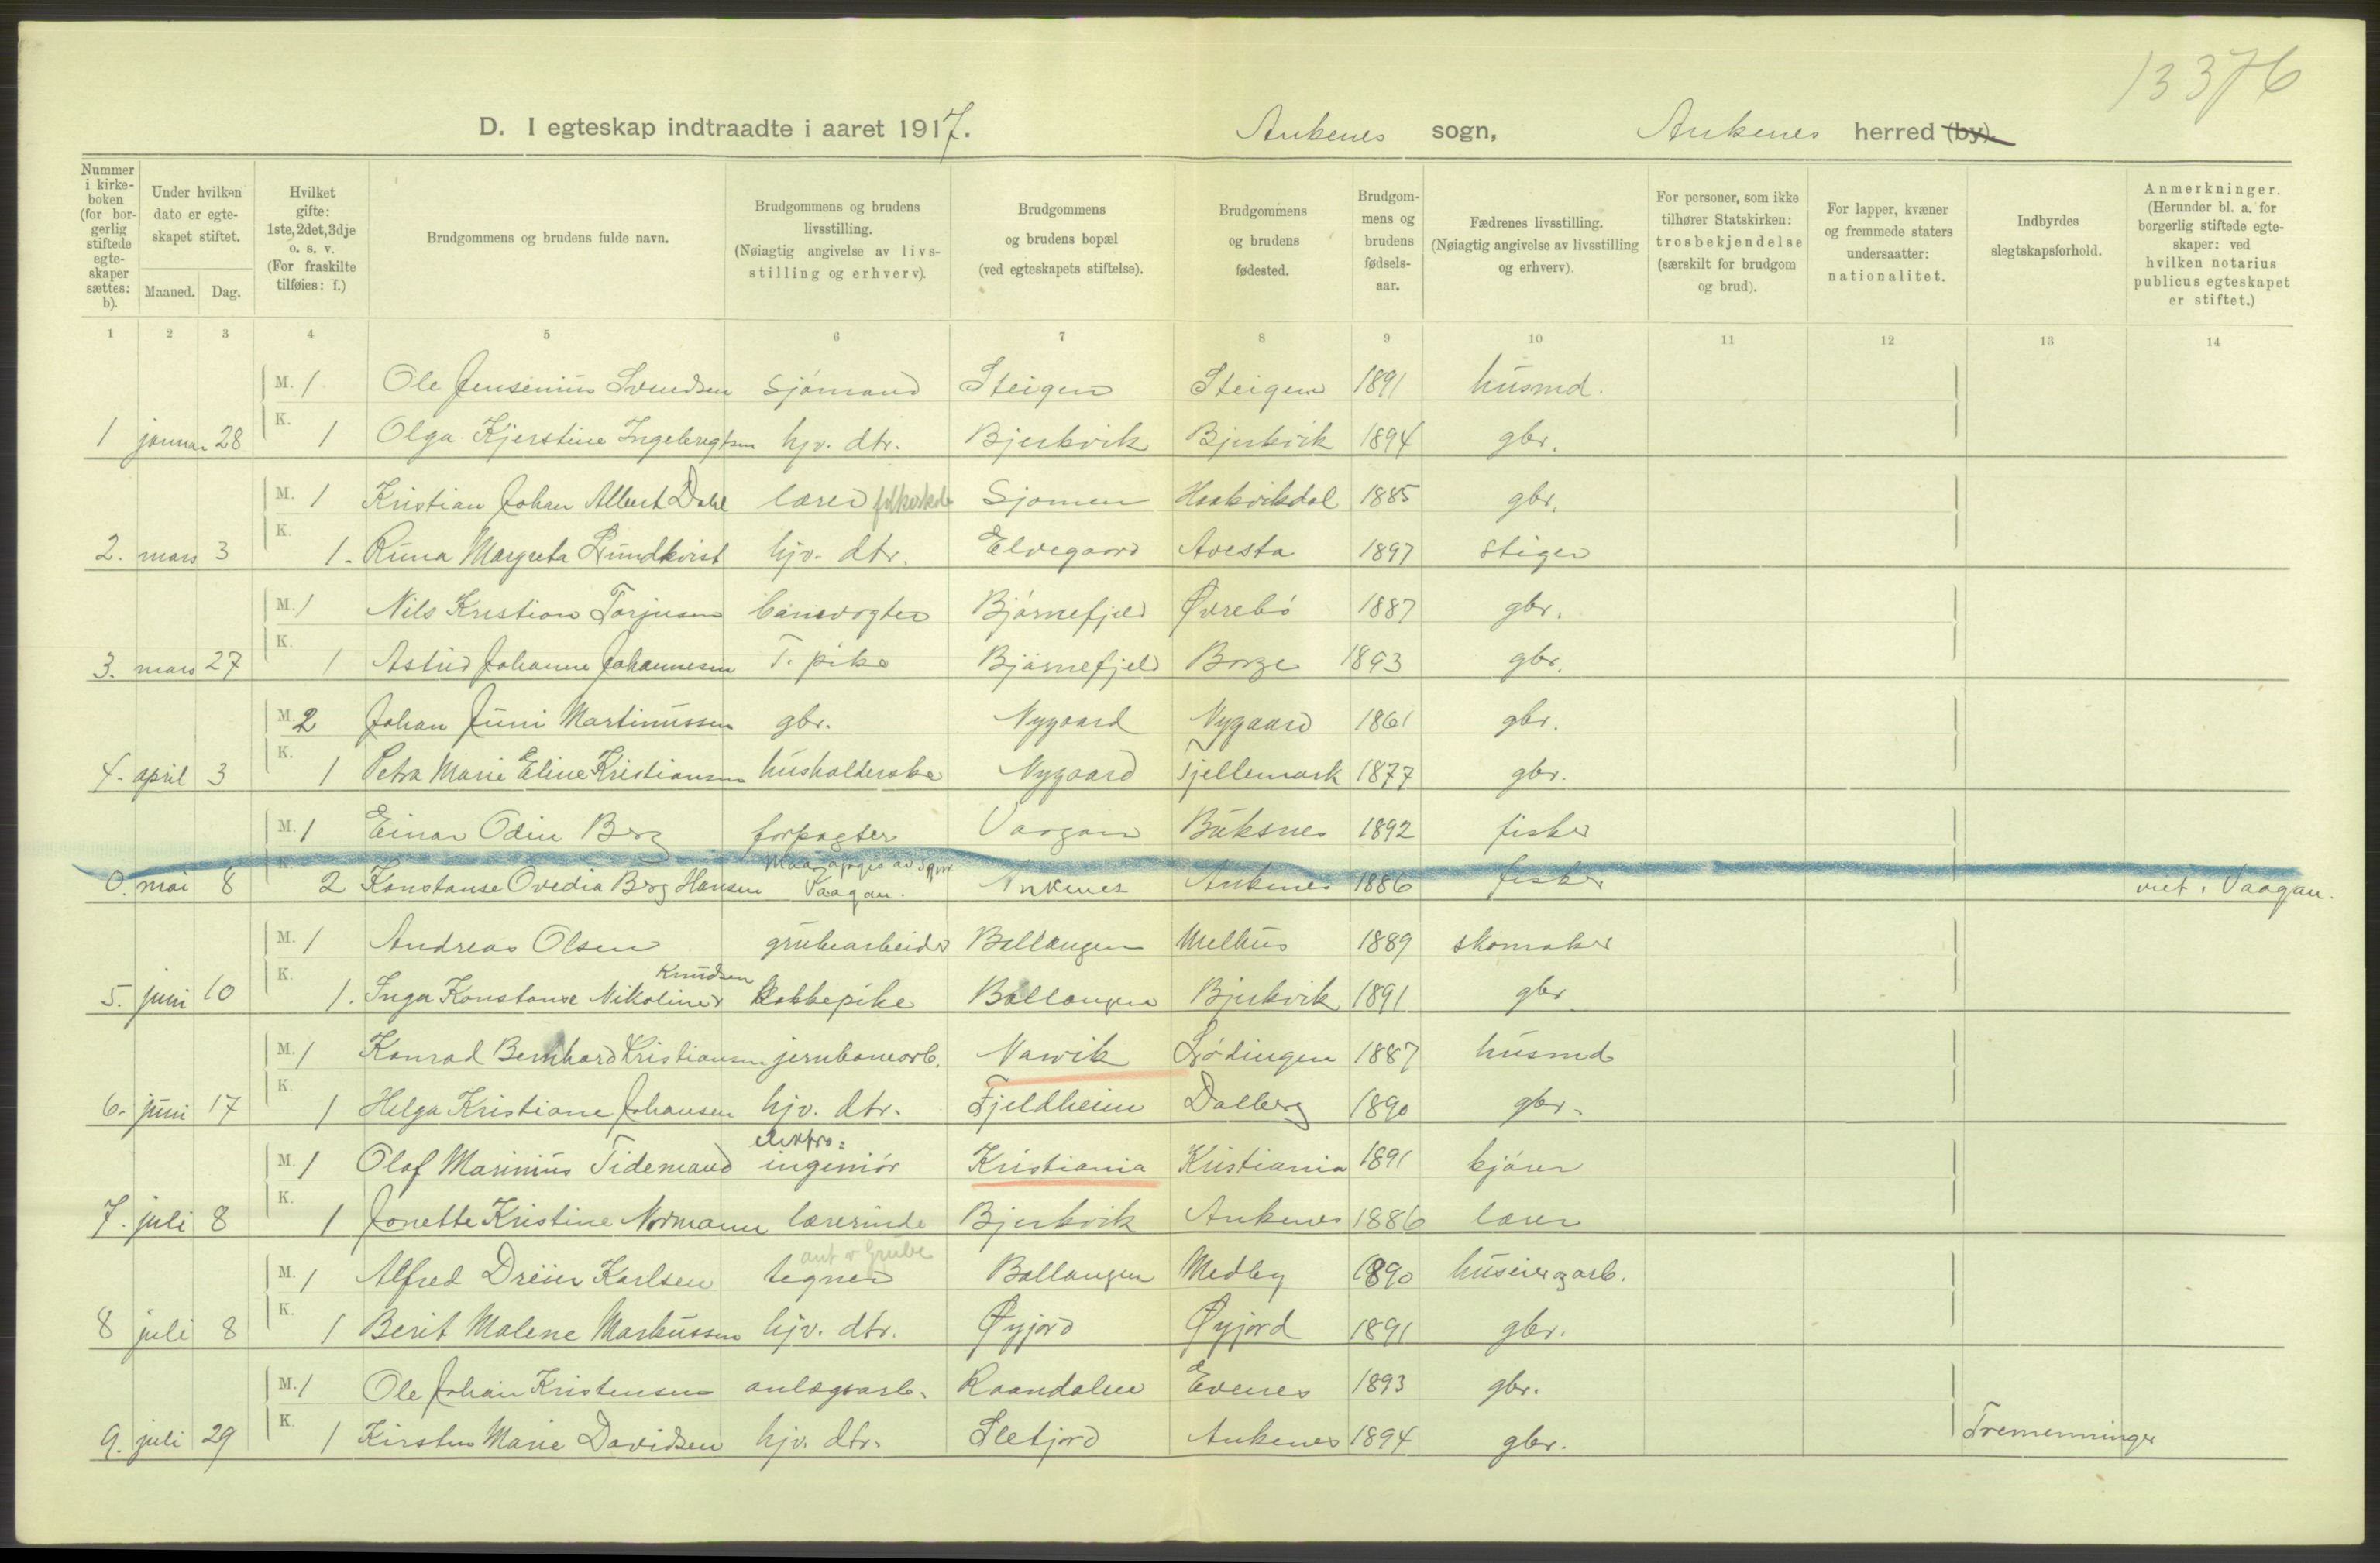 13376
D. I egteskap indtraadte i aaret 1917. Ankenes sogn, Ankenes herred (by).
Nummer i kirke-boken (for bor-gerlig stiftede egte-skaper sættes: b). Under hvilken dato er egte-skapet stiftet. Maaned. Dag. Hvilket gifte: 1ste, 2det, 3dje o. s. v. (For fraskilte tilføies: f.) Brudgommens og brudens fulde navn. Brudgommens og brudens livsstilling. (Nøiagtig angivelse av livs-stilling og erhverv). Brudgommens og brudens bopæl (ved egteskapets stiftelse). Brudgommens og brudens fødested. Brudgom-mens og brudens fødsels-aar. Fædrenes livsstilling. (Nøiagtig angivelse av livsstilling og erhverv). For personer, som ikke tilhører Statskirken: trosbekjendelse (særskilt for brudgom og brud). For lapper, kvæner og fremmede staters undersaatter: nationalitet. Indbyrdes slegtskapsforhold. Anmerkninger. (Herunder bl. a. for borgerlig stiftede egte-skaper: ved hvilken notarius publicus egteskapet er stiftet.)
1 2 3 4 5 6 7 8 9 10 11 12 13 14
M. 1 Ole Jensenius Svendsen Sjómand Steigen Steigen 1891 husmd.
1 januar 28 K. 1 Olga Kjerstine Ingebregtsen hjv. dtr. Bjerkvik Bjerkvik 1894 gbr.
M. 1 Kristian Johan Albert Dahl lærer Sjomen Haakvikdal 1885 gbr.
2. mars 3 K. 1. Runa Margreta Lundkvist hjv. dtr. Elvegaard Avesta 1897 Stiger
M. 1 Nils Kristian Torjusen banevogter Bjórnefjeld Øvrebó 1887 gbr.
3. mars 27 K. 1 Astrid Johanne Johannesen T. pike Bjórnefjeld Borge 1893 gbr.
M. 2 Johan Juni Martinussen gbr. Nygaard Nygaard 1861 gbr.
4. april 3 K. 1 Petra Marie Eline Kristiansen husholderske Nygaard Tjellemark 1877 gbr.
M. 1 Einar Odin Berg forpagter Vaagan Buksnes 1892 fisker
0. mai 8 K. 2 Konstanse Ovedia Berg Hansen Vaagan. Ankenes Ankenes 1886 fisker viet i Vaagan.
M. 1 Andreas Olsen grubearbeider Ballangen Melhus 1889 skomaker
Knudsen
5. juni 10 K. 1. Inga Konstanse Nikoline kokkepike Ballangen Bjerkvik 1891 gbr
M. 1 Konrad Bernhard Kristiansen jernbanearb. Narvik Lødingen 1887 husmd
6. juni 17 K. 1 Helga Kristiane Johansen hjv. dtr. Fjeldheim Dalberg 1890 gbr.
elektro=
M. 1 Olaf Marinius Tidemand ingeniór Kristiania Kristiania 1891 kjórer
7. juli 8 K. 1 Jonette Kristine Normann lærerinde Bjerkvik Ankenes 1886 lærer
ant v Grube
M. 1 Alfred Dreier Karlsen tegner Ballangen Medby 1890 huseier og arb.
8 juli 8 K. 1 Berit Malene Markussen hjv. dtr. Øyjord Øyjord 1891 gbr.
M. 1 Ole Johan Kristensen anlægsarb. Raandalen Evenes 1893 gbr.
9. juli 29 K. 1 Kirsten Marie Davidsen hjv. dtr. Sletjord Ankenes 1894 gbr. Tremenninger